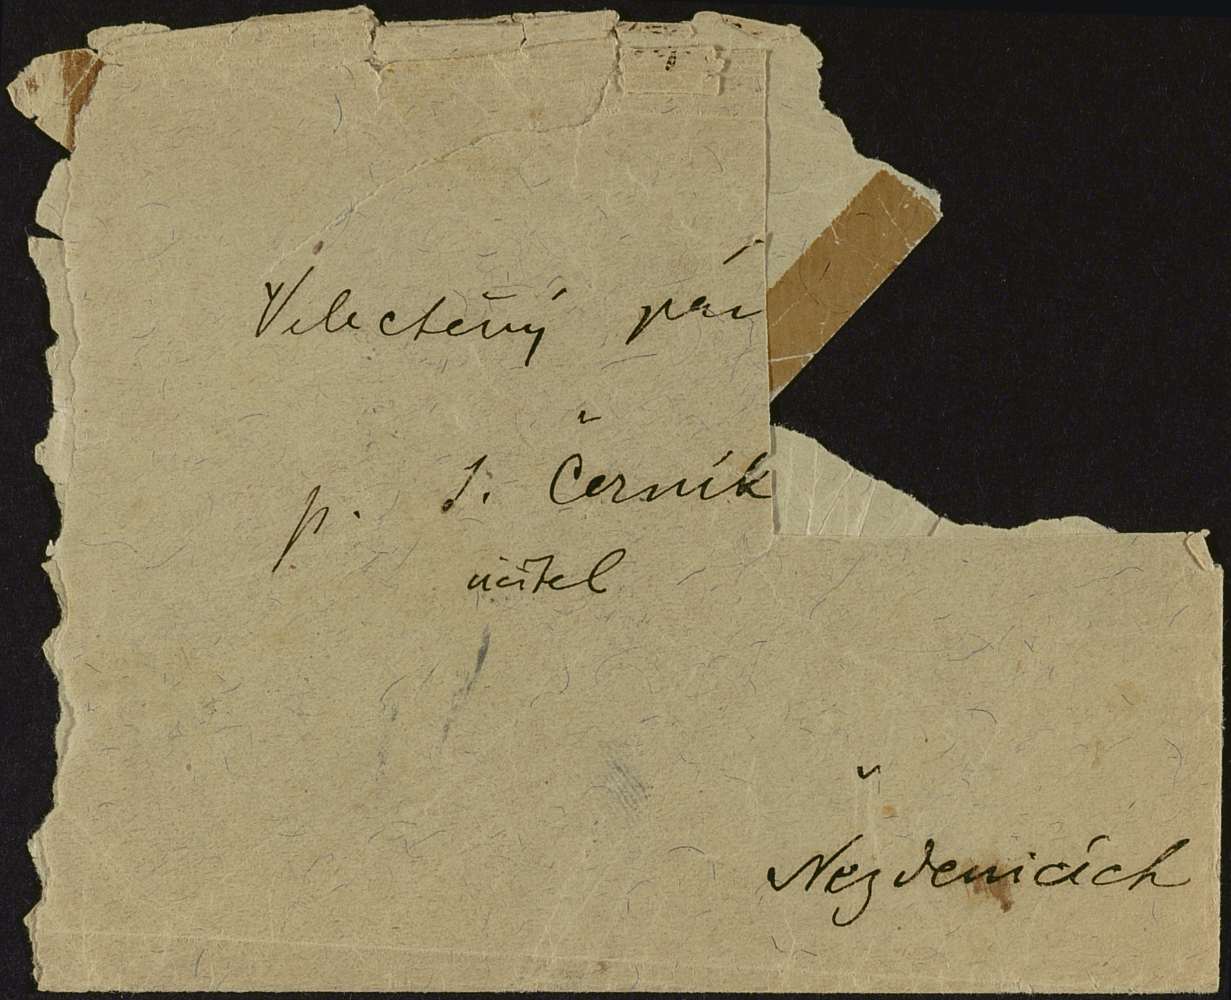 Velectěný pán
p. J. Černík
učitel
v
Nezdenicách